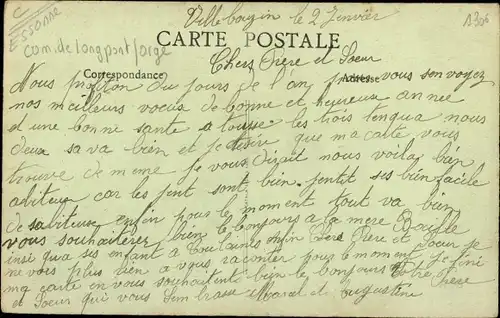 C
ESSONNE
Com. de longpont/orge
Villebougin le 2 Janvier
1306
CARTE POSTALE
Chers Frère et Soeur
Correspondance
Adresse
Nous profiton du jours de l'an pour vous envoyez
nos meilleurs voeux de bonne et heureuse annee
et une bonne sante a tousse les trois tenqua nous
deux sa va bien et je desire que ma carte vous
trouve de meme je vous dirait nous voila bien
abiteux car les peti sont bien jentit ses bien facile
de sabiteux enfin pour le moment tout va bien
vous souhaiterez bien le bonjours a la mere
insi qua ses enfant a enfin Chers Frère et Soeur je
ne vois plus rien a vous raconter pour le moment je fini
ma carte en vous souhaitent bien le bonjours Votre Frère
et Soeur qui vous Sembrasse Marcel et Augustine